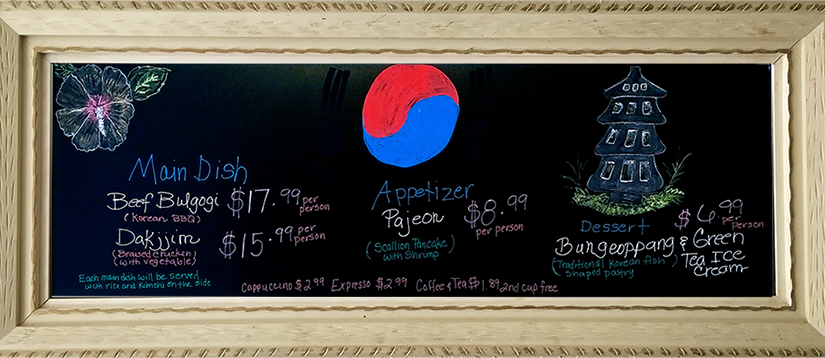 Main Dish
Beef Bulgogi $17.99 per person
(Korean BBQ)
Dakjjim $15.99 per person
(Braised chicken)
(with vegetable)
Each main dish will be served
with rice and Kimchi on the side
Appetizer
Pajeon $8.99
per person
(Scallion Pancake
with Shrimp)
Dessert $6.99 per person
Bungeoppang & Green
Tea Ice
Cream
(Traditional Korean fish
shaped pastry)
Cappuccino $2.99 Expresso $2.99 Coffee & Tea $1.89 2nd cup free